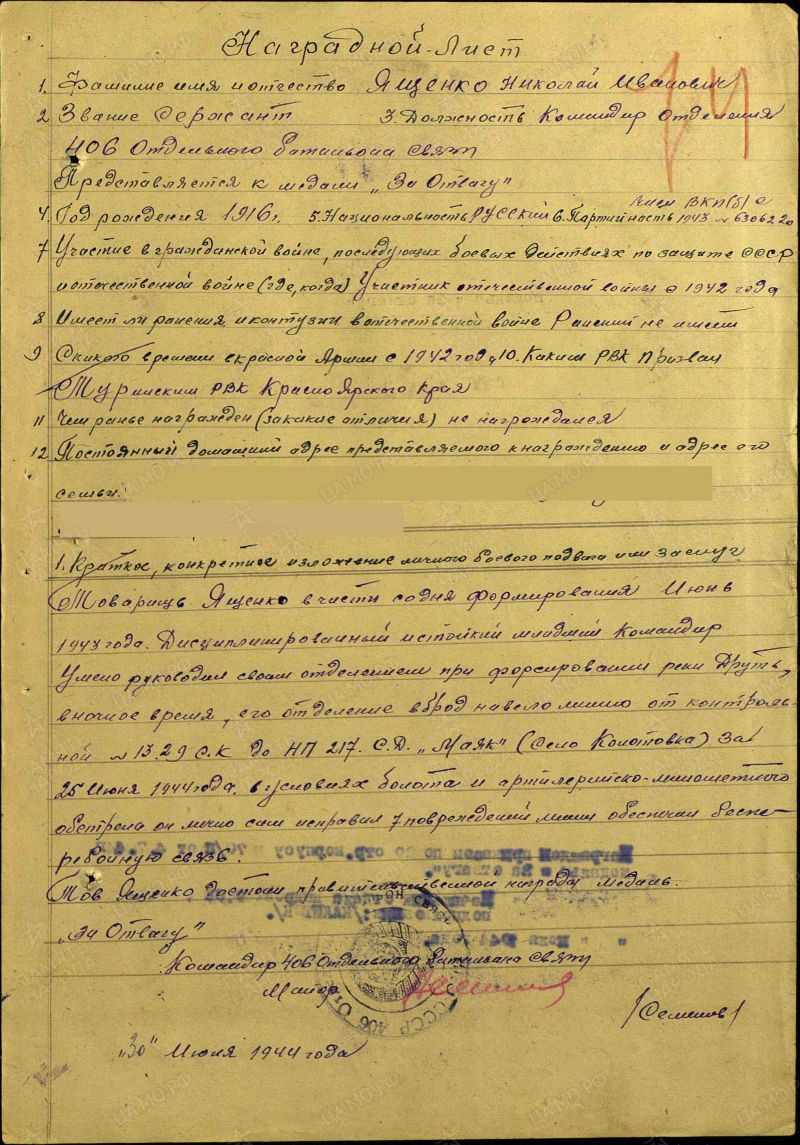 Наградной-Лист
1. Фамилие имя и отчество Ященко Николай Иванович
2 Звание Сержант 3. Должность Командир Отделения
406 Отдельного Батальона связи
Представляется к медали „За Отвагу"
член ВКП(б) с
4. Год рождения 1916 г. 5. Национальность Русский 6. Партийность 1943 №
7 Участие в гражданской войне, последующих боевых действиях по защите СССР
и отечественной войне (где, когда) Участник отечественной войны с 1942 года
8 Имеет ли ранения и контузии в отечественной войне Ранений не имеет
9 времени в красной Армии с 1942 года 10. Каким РВК Призван
РВК Красноярского Края
11 Чем ранье награжден (за какие отличия) не награждался
12 Постоянный домашний адрес представляемого к награждению и адрес его
семьи.
1. Краткое, конкретное изложение личного боевого подвига или заслуг
Товарищь Ященко в части со дня формирования Июнь
1943 года. Дисциплинированный и стойкий младший Командир
Умело руководил своим отделением при форсировании реки Друть,
в ночное время, его отделение вброд навело линию от контроль-
ной № 13. 29 С.К до НП 217. С.Д. „Маяк" (Село Колотовка) За
25 Июня 1944 года. в условиях болота и артилерийско-минометного
обстрела он лично сам исправил 7 повреждений линии обеспечил беспе-
ребойную связь.
Тов Ященко достоин правительственной награды медаль.
„За Отвагу"
Командир 406 Отдельного Батальона Связи
Майор
/Семенов/
„30" Июня 1944 года